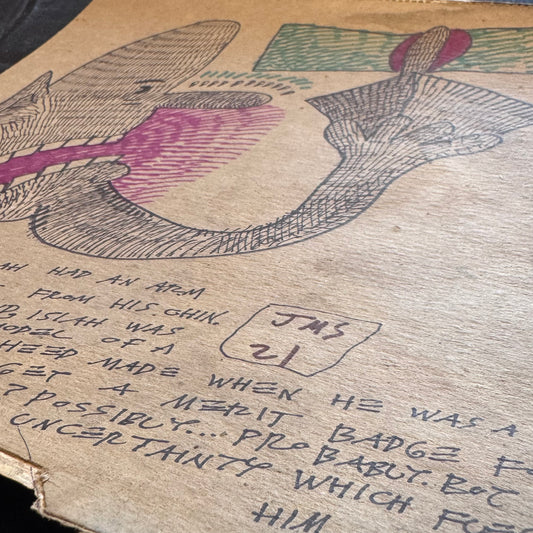 AH HAD AN ARM
FROM HIS CHIN.
ISLAH WAS
MODEL OF A
HEED MADE WHEN HE WAS A
GET A MERIT BADGE FO
? POSSIBLY.... PROBABLY. BUT
UNCERTAINTY WHICH
HIM
JMS
21